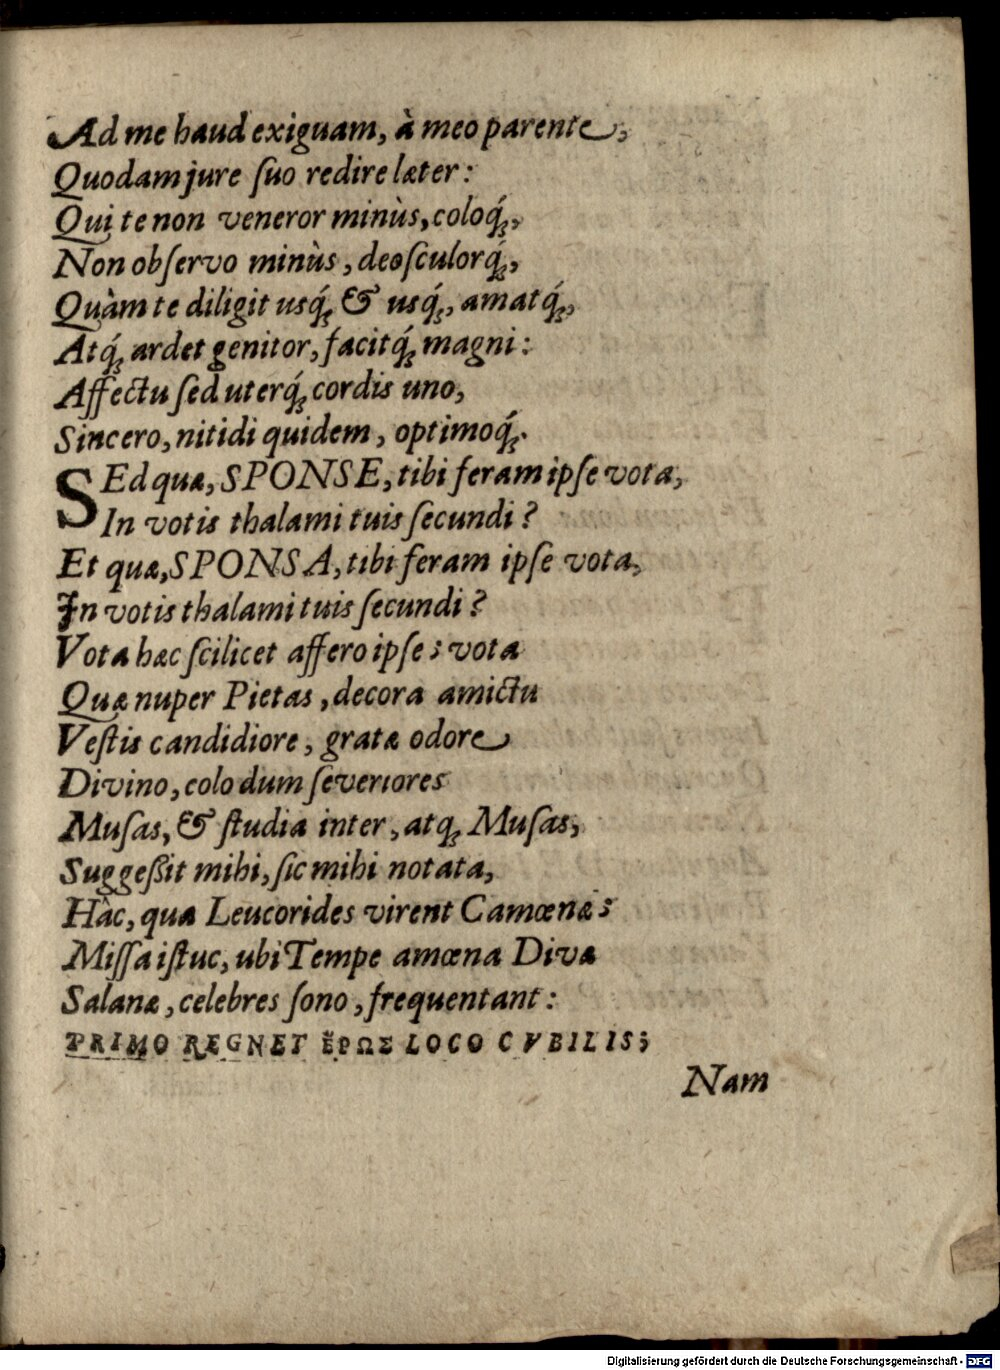 Ad me haud exiguam, à meo parente,
Quodam jure ſuo redire læter:
Qui te non veneror minùs, coloq́;,
Non obſervo minùs, deoſculorq́;,
Quàm te diligit usq́; & usq́;, amatq́;,
Atq́; ardet genitor, facitq́; magni:
Affectu ſed uterq́; cordis uno,
Sincero, nitidi quidem, optimoq́;.
SEd quæ, SPONSE, tibi feram ipſe vota,
In votis thalami tuis ſecundi?
Et quæ, SPONSA, tibi feram ipſe vota,
In votis thalami tuis ſecundi?
Vota hæc ſcilicet affero ipſe; vota
Quæ nuper Pietas, decora amictu
Veſtis candidiore, grata odore
Divino, colo dum ſeveriores
Muſas, & ſtudia inter, atq; Muſas,
Suggeßit mihi, ſic mihi notata,
Hàc, qua Leucorides virent Camœnæ;
Miſſa iſtuc, ubi Tempe amœna Divæ
Salanæ, celebres ſono, frequentant:
PRIMO REGNET ἜΡΩΣ LOCO CVBILIS;
Nam
Digitalisierung gefördert durch die Deutsche Forschungsgemeinschaft - DFG